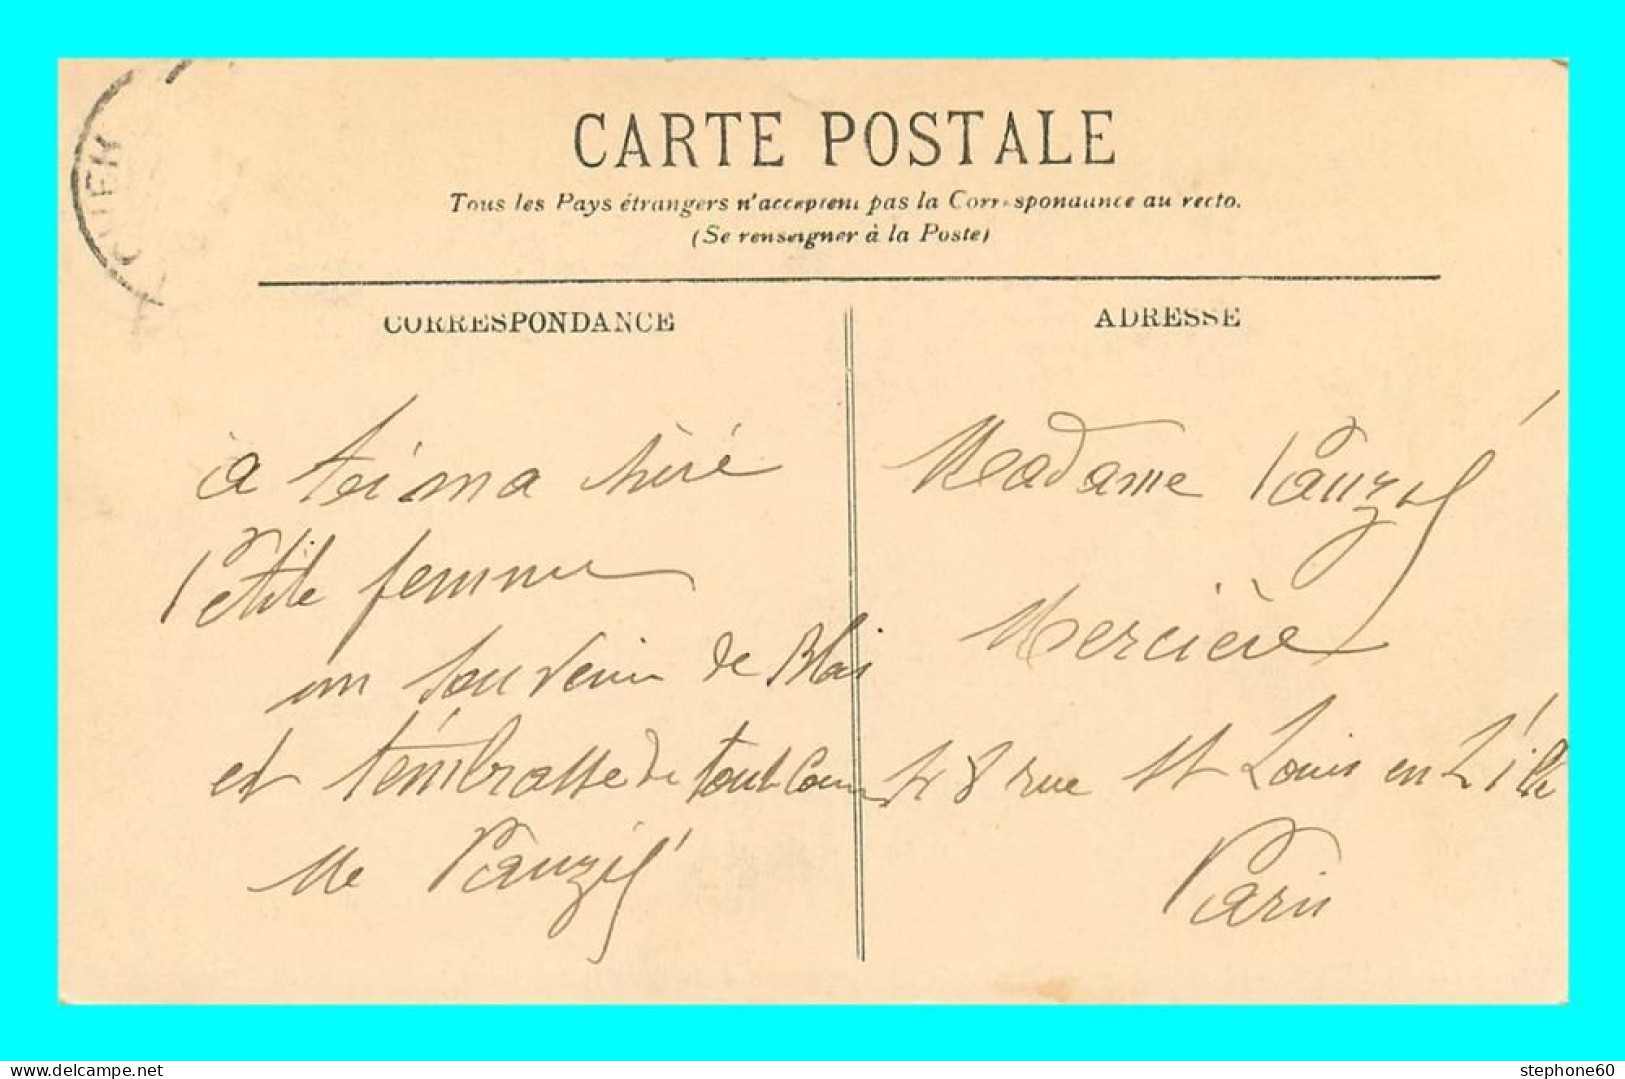 CARTE POSTALE
Tous les Pays étrangers n'acceptent pas la Correspondance au recto.
(Se renseigner à la Poste)
CORRESPONDANCE
ADRESSE
à toi ma
Petite femme
un souvenir de Blois
et t'embrasse de tout
Madame
Mercière
48 rue St Louis en L'île
Paris
www.delcampe.net
stephone60